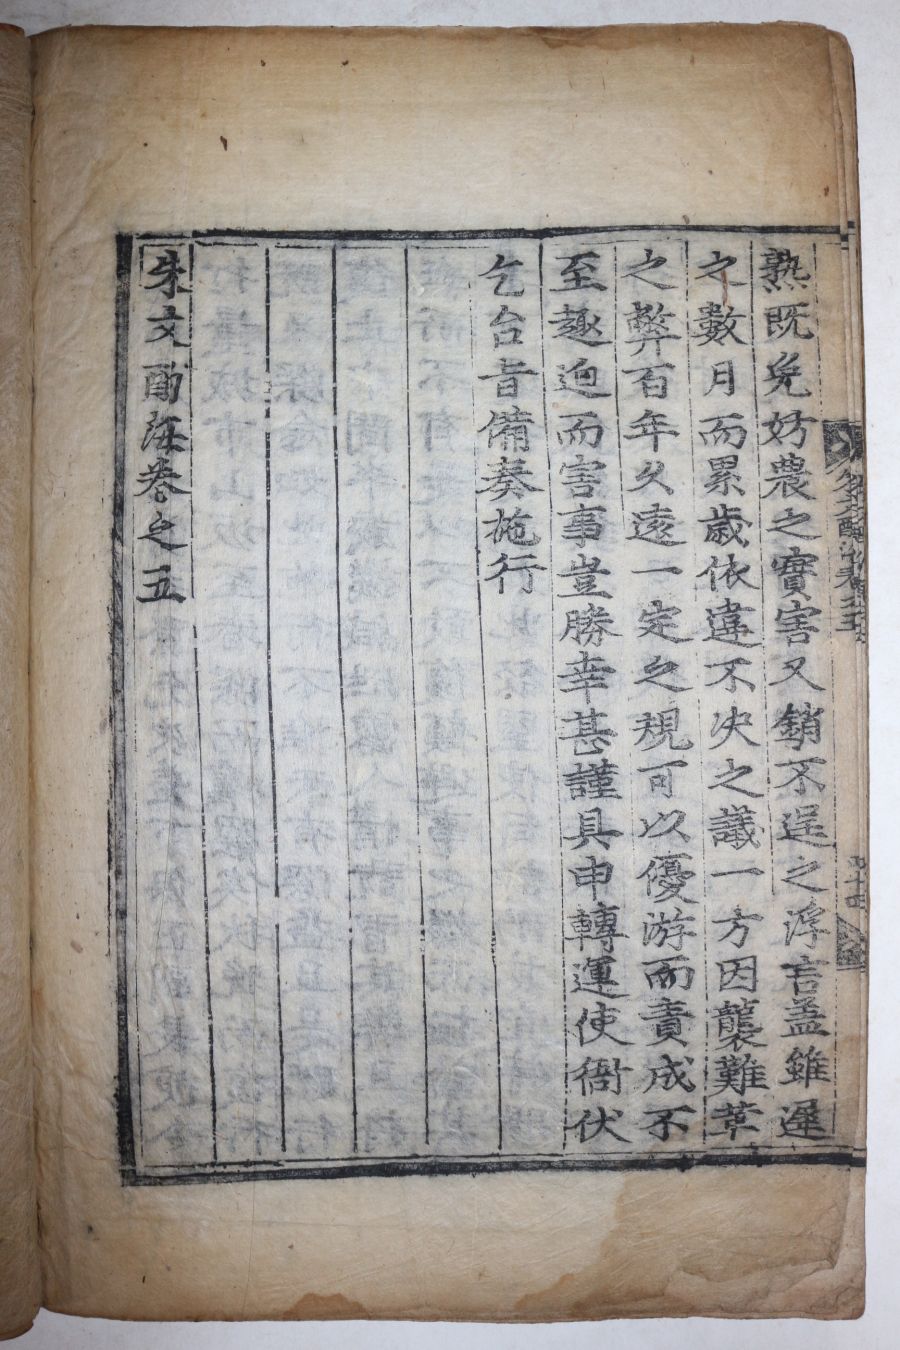 熟既免妨農之實害又銷不逞之浮言盖雖遲
之數月而累歲依違不决之議一方因襲難革
之弊百年久遠一定之規可以優游而責成不
至趣迫而害事豈勝幸甚謹具申轉運使衙伏
乞台旨備奏施行
朱文酌海卷之五